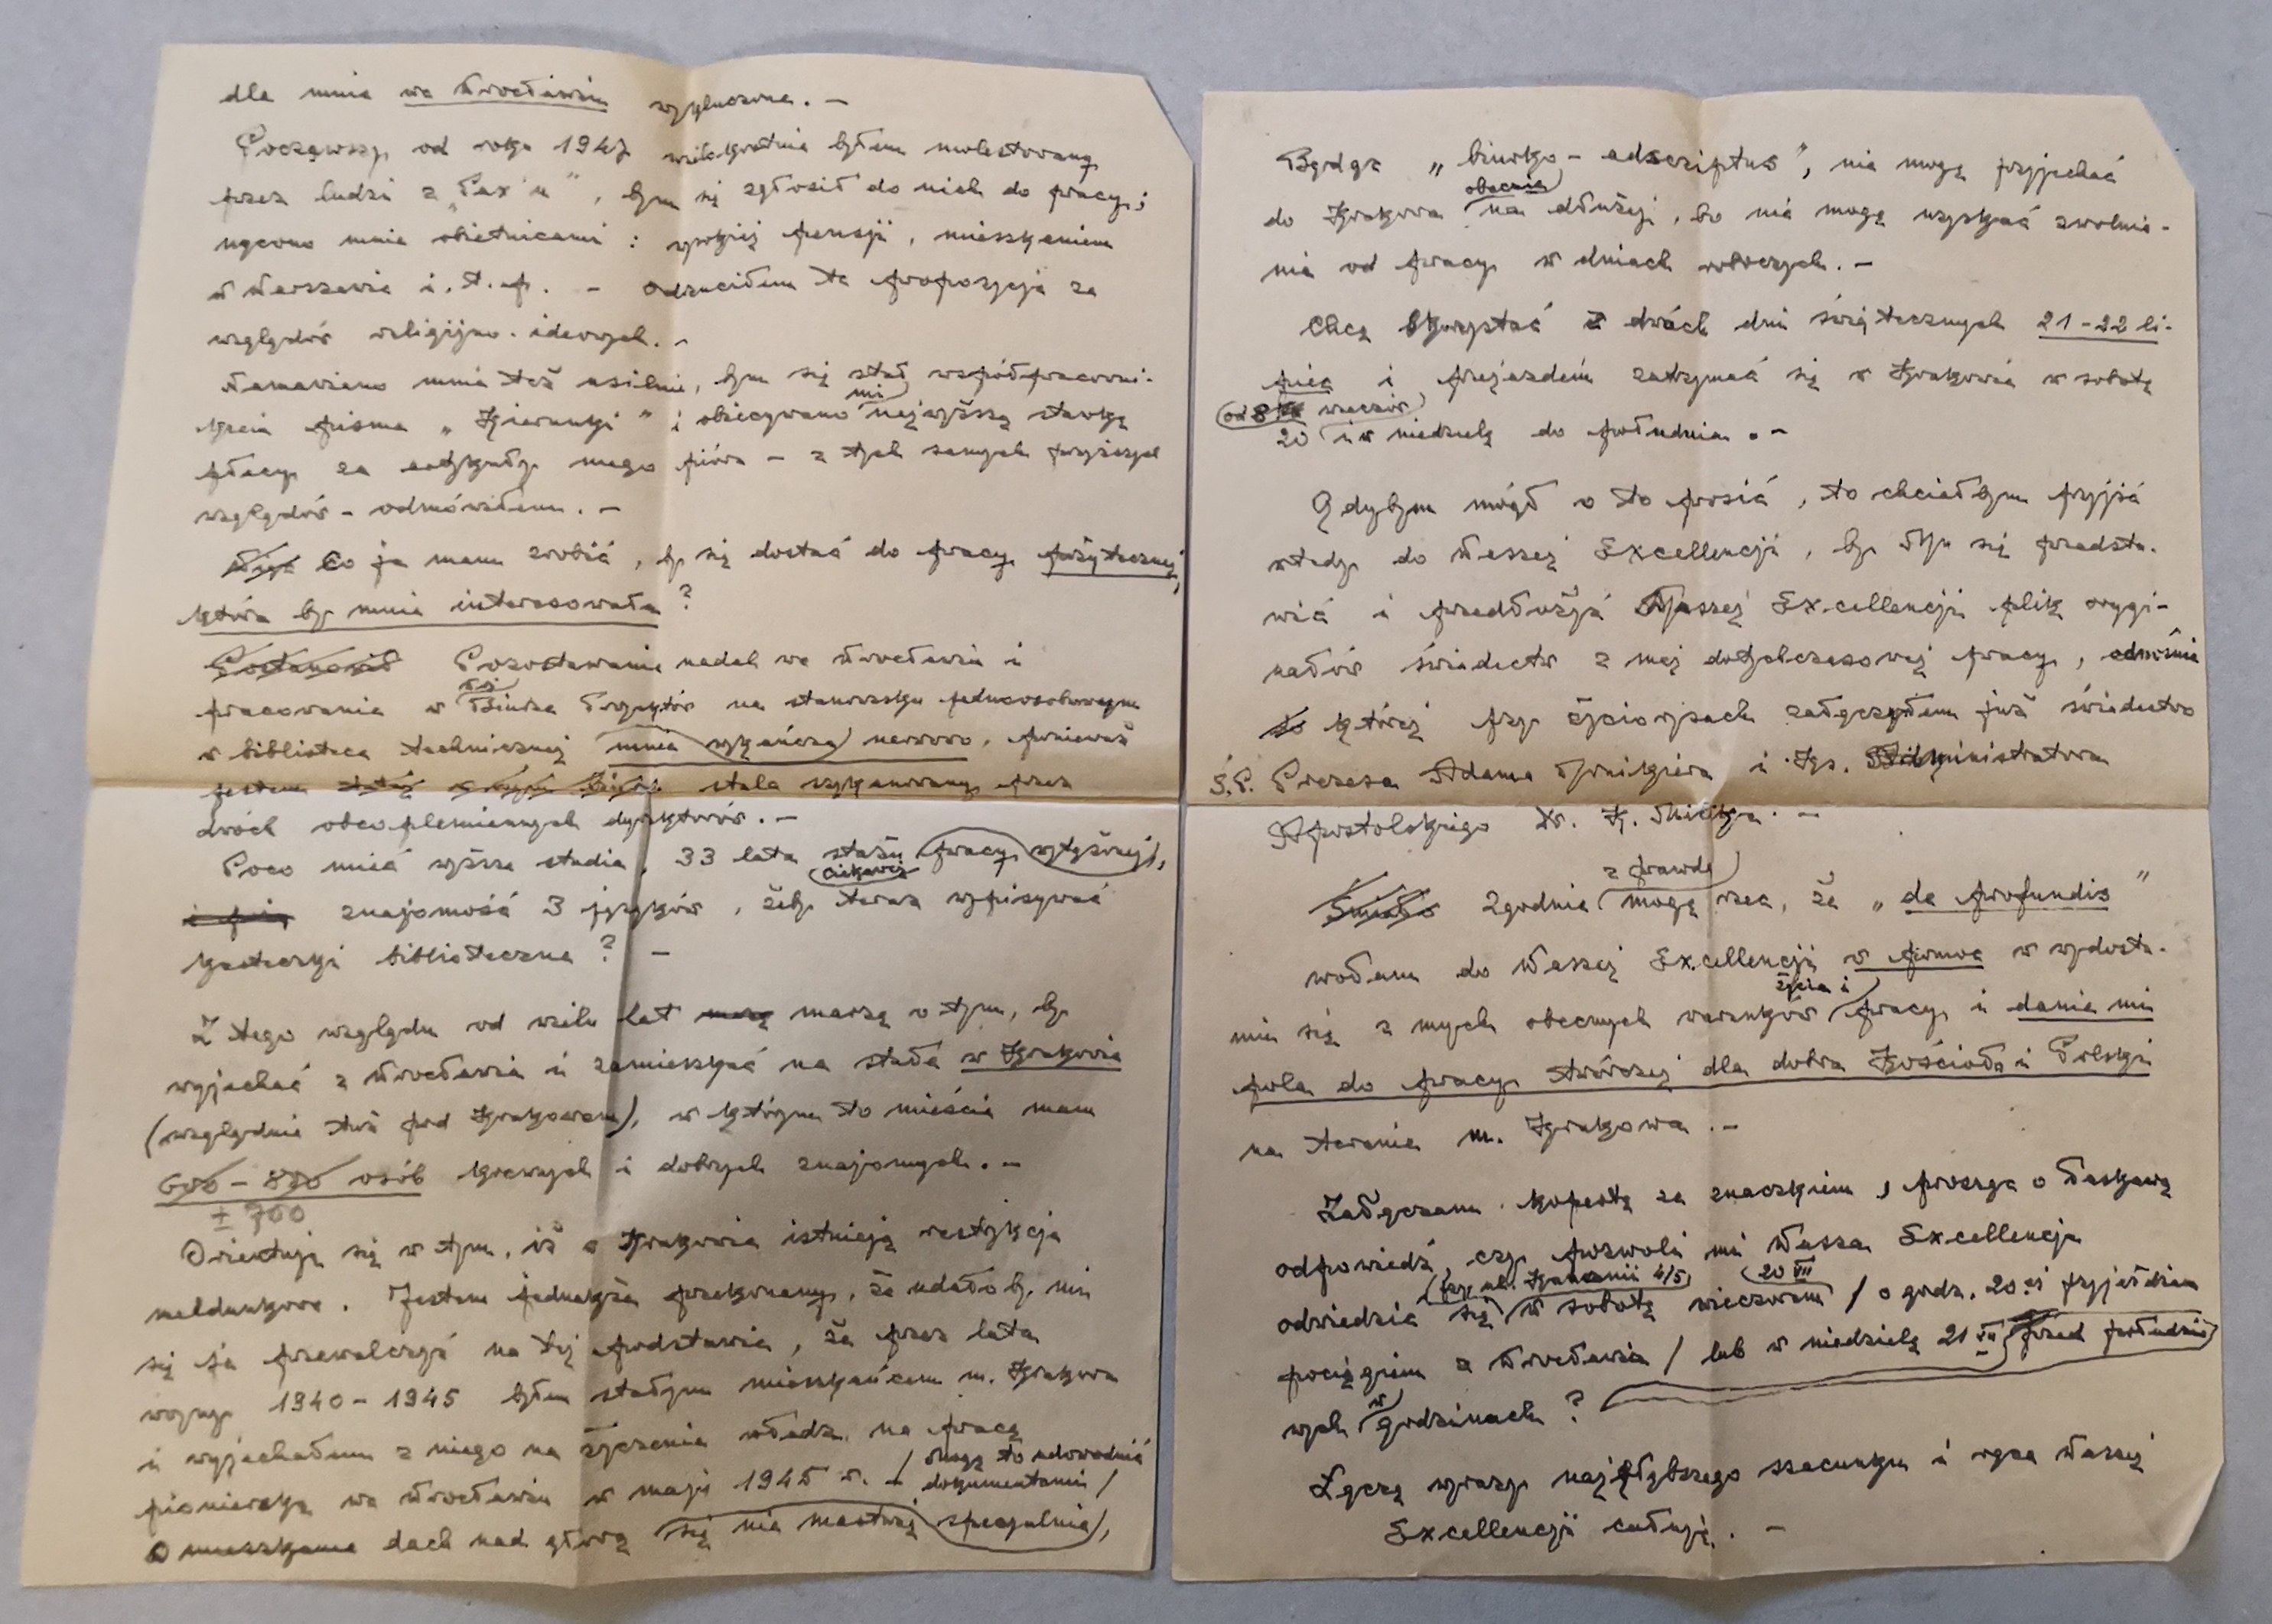 dla mnie we Wrocławiu wykluczone. –
Począwszy od roku 1947 wielokrotnie byłem molestowany
przez ludzi z „Pax'u", bym się zgłosił do nich do pracy;
nęcono mnie obietnicami: wysokiej pensji, mieszkaniem
w Warszawie i.t.p. – Odrzuciłem te propozycje ze
względów religijno-ideowych. –
Namawiano mnie też usilnie, bym się stał współpracowni-
kiem pisma „Kierunki" i obiecywano mi najwyższą stawkę
płacy za artykuły mego pióra – z tych samych przyczyn
względów – odmówiłem. –
Co ja mam zrobić, by się dostać do pracy pożytecznej,
która by mnie interesowała?
Postanowił Pozostawanie nadal we Wrocławiu i
pracowanie w Biurze Projektów na stanowisku jednoosobowym
w bibliotece technicznej mnie wykańcza nerwowo, ponieważ
jestem stale szykanowany przez
dwóch obcoplemiennych dyrektorów. –
Poco mieć wyższe studia, 33 lata stażu ciekawej pracy wytężonej,
znajomość 3 języków, żeby teraz wypisywać
karteczki biblioteczne? –
Z tego względu od wielu lat marzę o tym, by
wyjechać z Wrocławia i zamieszkać na stałe w Krakowie
(względnie tuż pod Krakowem), w którym to mieście mam
600 – 800 osób krewnych i dobrych znajomych. –
± 700
Orientuję się w tym, iż w Krakowie istnieją restrykcje
meldunkowe. Jestem jednakże przekonany, że udałoby mi
się je przewalczyć na tej podstawie, że przez lata
wojny 1940 – 1945 byłem stałym mieszkańcem m. Krakowa
i wyjechałem z niego na życzenie władz na pracę
pionierską we Wrocławiu w maju 1945 r. – / Mogę to udowodnić
dokumentami /
O mieszkanie dach nad głową się nie martwię specjalnie,
Będąc „biurko – adscriptus", nie mogę przyjechać
do Krakowa obecnie na dłużej, bo nie mogę uzyskać zwolnie-
nia od pracy w dniach roboczych. –
Chcę skorzystać z dwóch dni świątecznych 21 – 22 li-
pca i przejazdem zatrzymać się w Krakowie w sobotę
od 8 wieczór
20 i w niedzielę do południa. –
Gdybym mógł o to prosić, to chciałbym przyjść
wtedy do Waszej Excellencji, by Mu się przedsta-
wić i przedłożyć Waszej Excellencji plik orygi-
nałów świadectw z mej dotychczasowej pracy, odnośnie
do której przy życiorysach załączyłem już świadectwo
Ś.P. Prezesa Adama i Ks. Administratora
Apostolskiego Dr. K. Milika. –
Zgodnie z prawdą mogę rzec, że „de profundis"
wołam do Waszej Excellencji o pomoc w wydosta-
niu się z mych obecnych warunków życia i pracy i danie mi
pola do pracy twórczej dla dobra Kościoła i Polski
na terenie m. Krakowa. –
Załączam kopertę ze znaczkiem, prosząc o łaskawą
odpowiedź, czy pozwoli mi Wasza Excellencja
odwiedzić się (przy ul. Kanonii 4/5) w sobotę 20 VII wieczorem / o godz. 20-ej przyjeżdżam
pociągiem z Wrocławia / lub w niedzielę 21 VII przed południo-
wych w godzinach?
Łączę wyrazy najgłębszego szacunku i ręce Waszej
Excellencji całuję. –